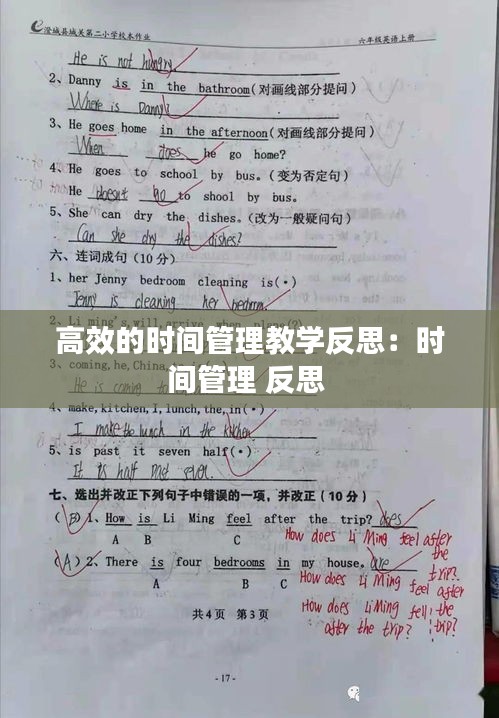 澄城县城关第二小学校本作业 六年级英语上册
He is not hungry.
2、Danny is in the bathroom(对画线部分提问)
Where is Danny?
3、He goes home in the afternoon(对画线部分提问)
When does he go home?
4、He goes to school by bus。(变为否定句)
He doesn't go to shool by bus.
5、She can dry the dishes。(改为一般疑问句)
Can she dry the dishes?
六、连词成句(10分)
1、her Jenny bedroom cleaning is(·)
Jenny is cleaning her bedroom.
高效的时间管理教学反思：时
间管理 反思
3、coming,he,China,
He is coming to
4、make,kitchen,I,lunch,the,in(·)
I make the lunch in the kitchen
5、is past it seven half(·)
It is half past seven.
七、选出并改正下列句子中错误的一项，并改正(10分)
(B)1、How is Li Ming feel after the trip? does
A B C
How does Li Ming feel after the trip?
(A)2、There is four bedrooms in my house. are
A B C
How does Li Ming feel after the trip?
How does Li Ming fell after the trip?
共4页 第3页
-17-